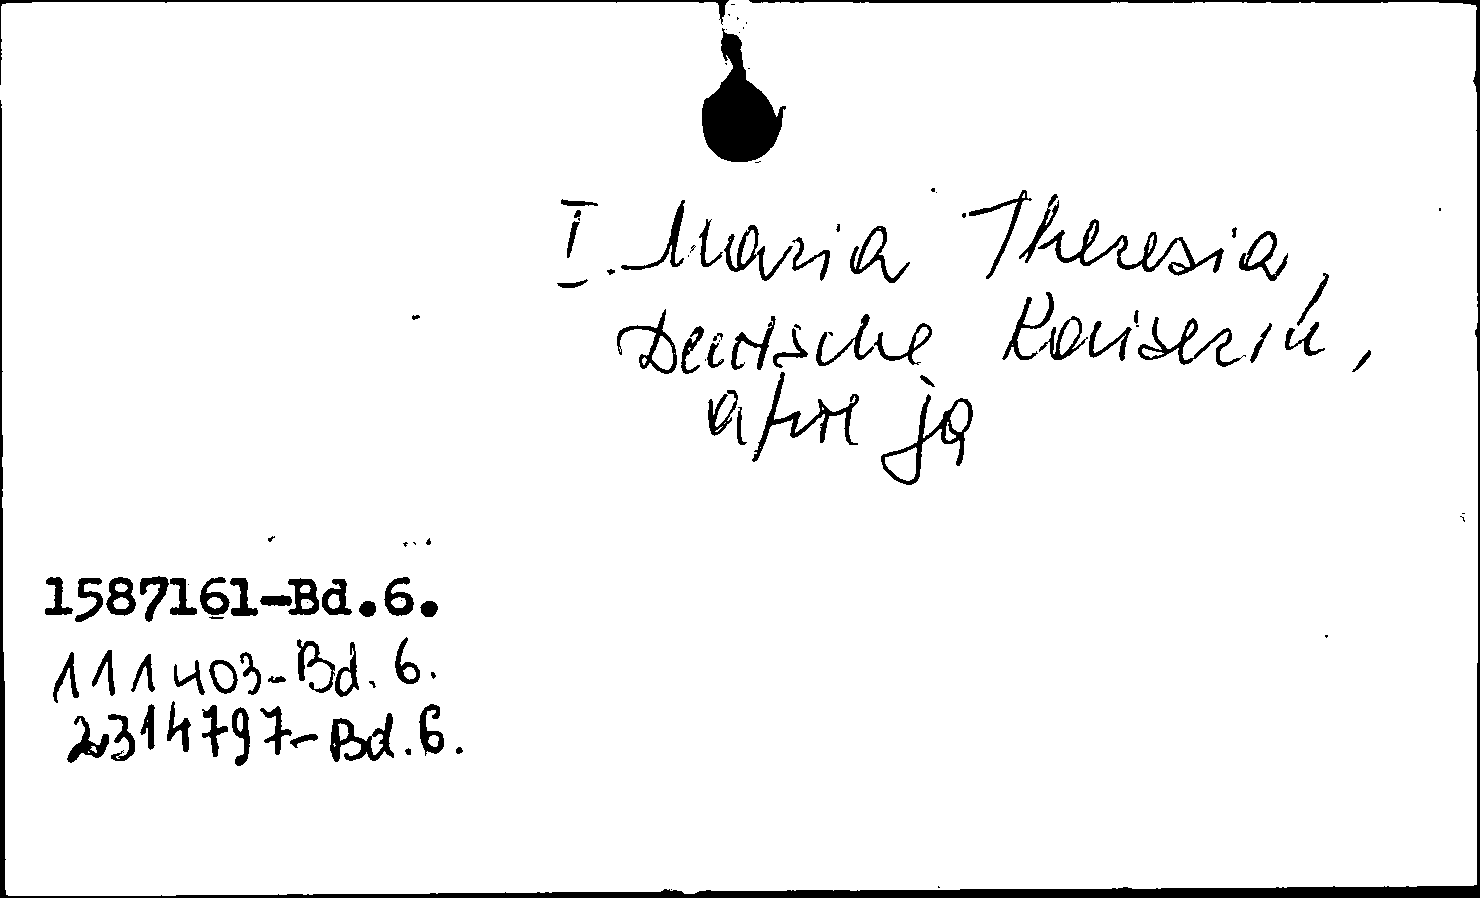 I. Maria Theresia,
Deutsche Kaiserin,
apre ja
1587161-Bd.6.
111403-Bd. 6.
2314797-Bd.6.